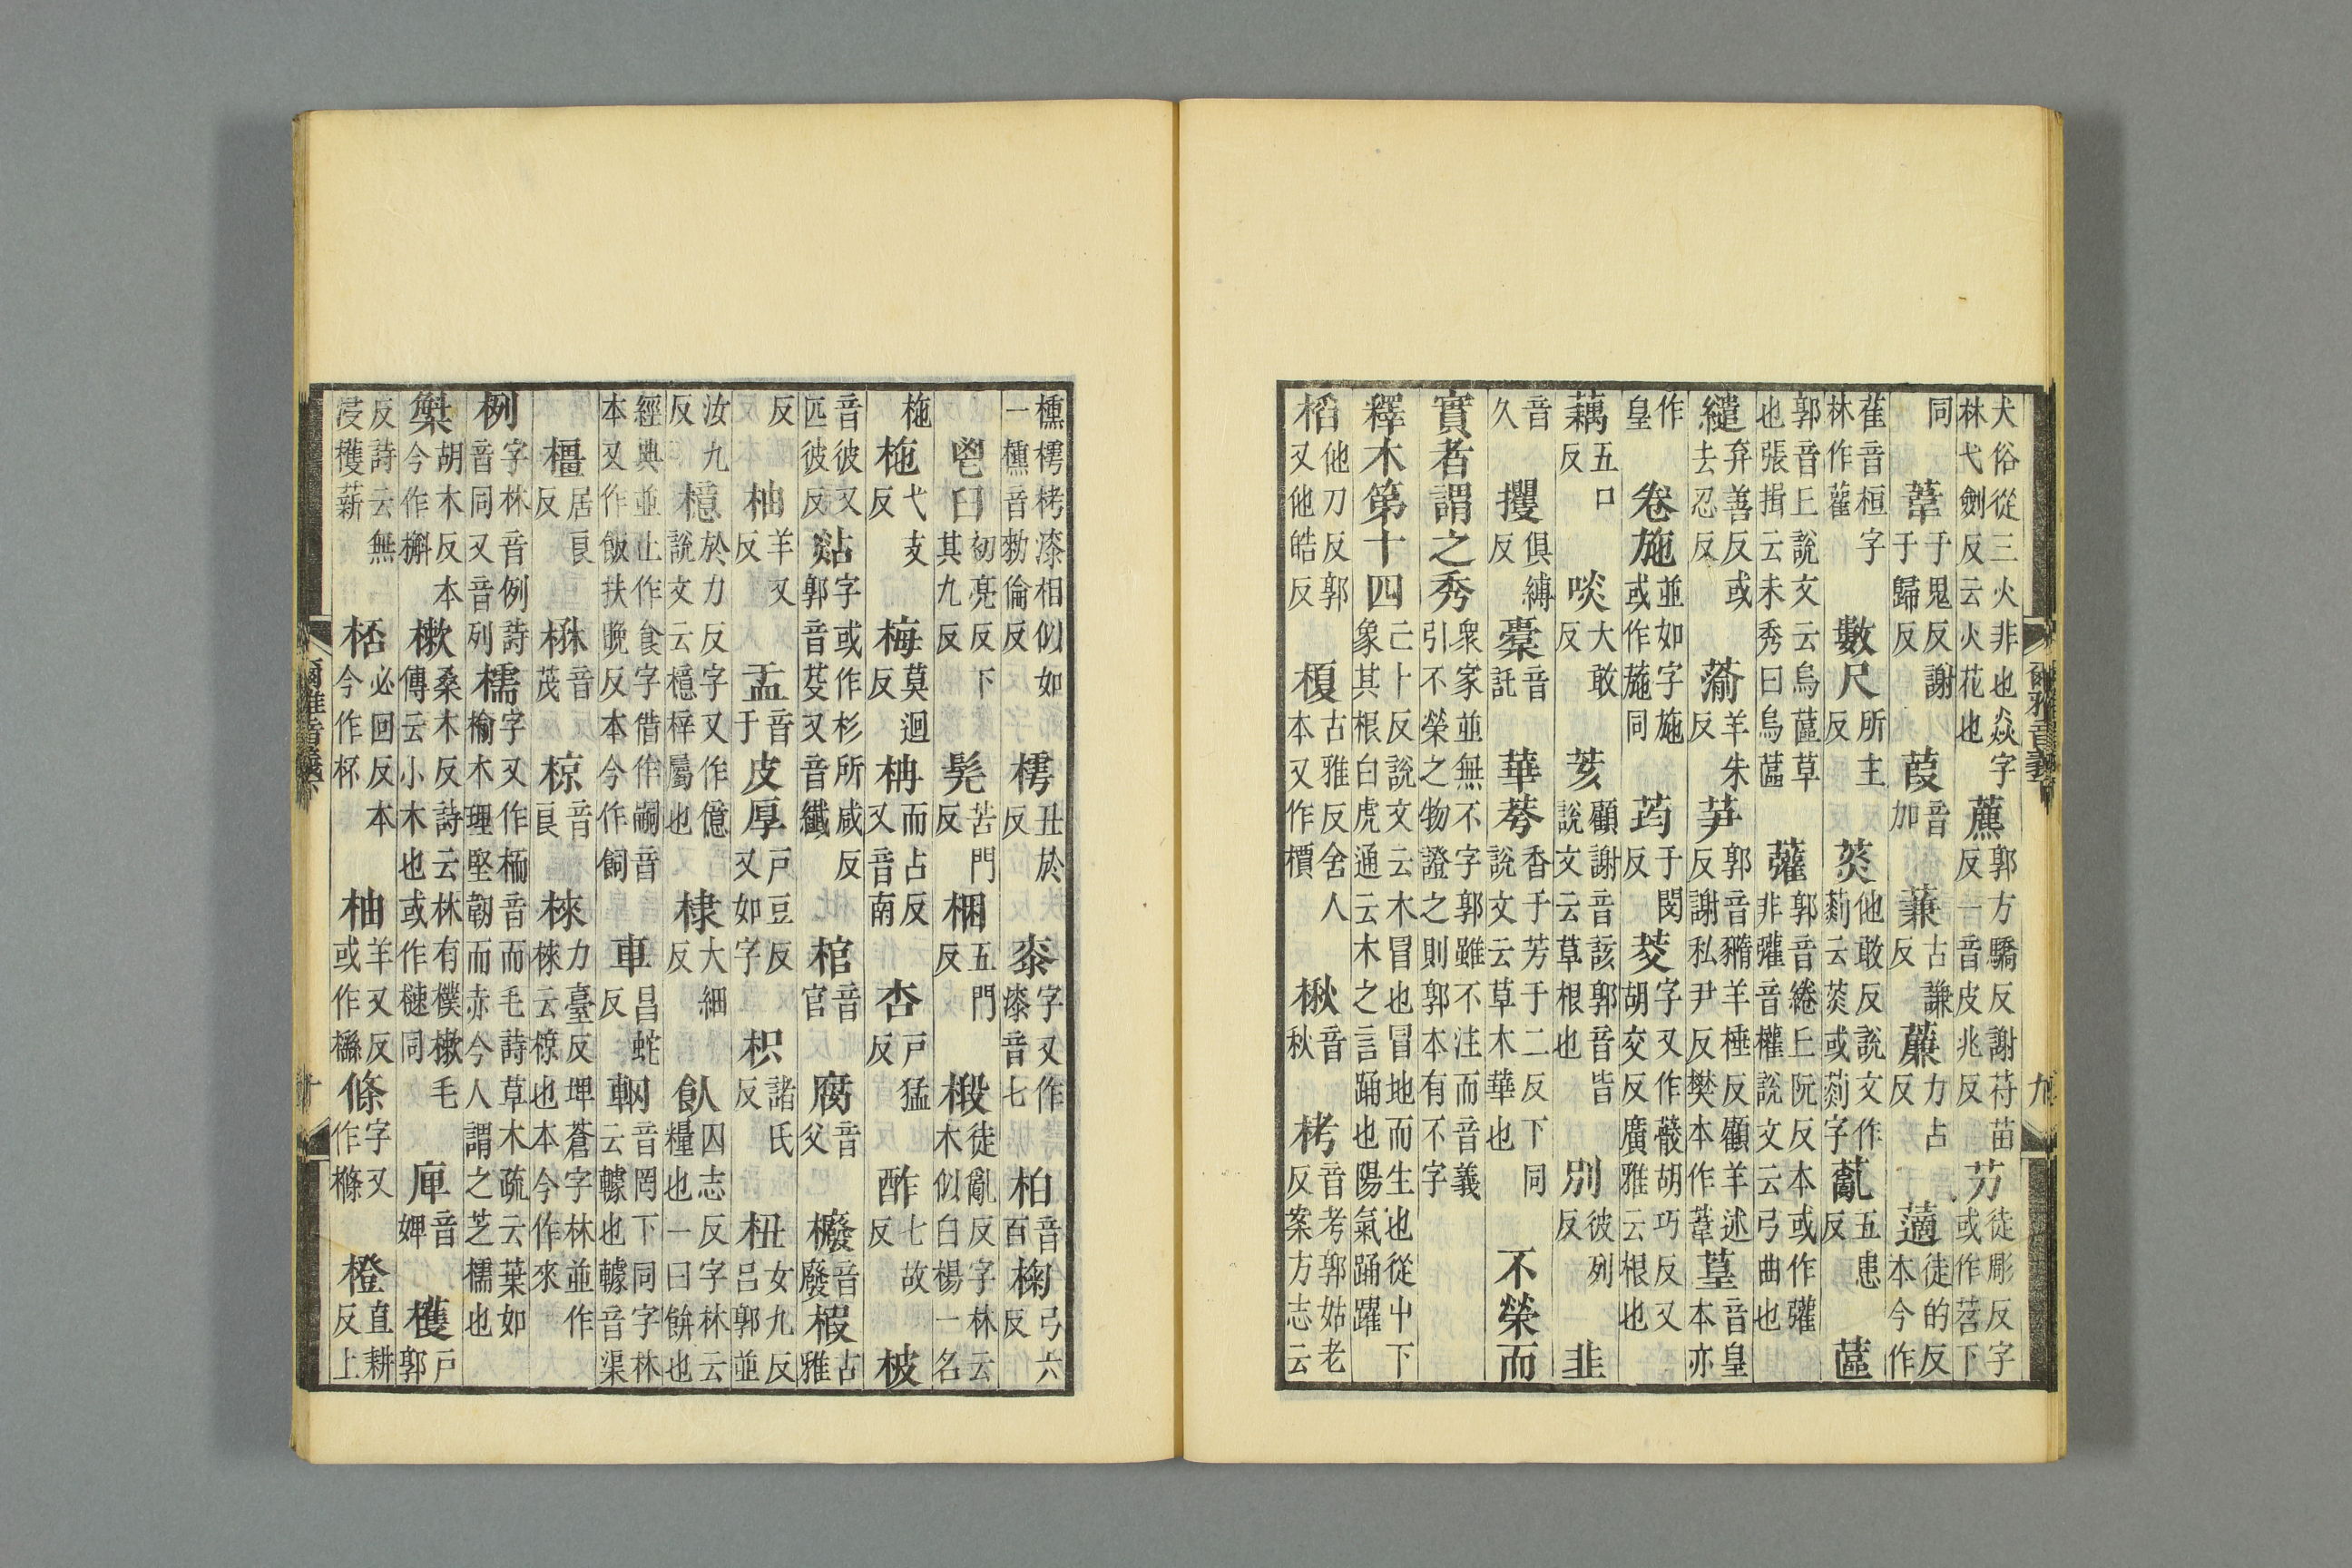 犬俗從三火非也焱字
林弋劍反云火花也
藨
郭方驕反謝苻苗
反一音皮兆反
芀
徒彫反字
或作苕下
同
葦
于鬼反謝
于歸反
葭
音
加
蒹
古謙
反
薕
力占
反
薖
徒的反
本今作
萑音桓字
林作雚
數尺
所主
反
菼
他敢反說文作
䓤云菼或䓤字
薍
五患
反
蓲
郭音丘說文云烏蓲草
也張揖云未秀曰烏蓲
虇
郭音綣丘阮反本或作虇
非虇音權說文云弓曲也
繾
弃善反或
去忍反
蕍
羊朱
反
芛
郭音豬羊捶反顧羊述
反謝私尹反樊本作葦
葟
音皇
本亦
作
皇
卷施
並如字施
或作葹同
荺
于閔
反
茭
字又作䕧胡巧反又
胡交反廣雅云根也
藕
五口
反
啖
大敢
反
荄
顧謝音該郭音皆
說文云草根也
別
彼列
反
韭
音
久
攫
俱縛
反
橐
音
託
華荂
香于芳于二反下同
說文云草木華也
不榮而
實者謂之秀
衆家並無不字郭雖不注而音義
引不榮之物證之則郭本有不字
釋木第十四
亡卜反說文云木冒也冒地而生也從屮下
象其根白虎通云木之言踊也陽氣踊躍
槄
他刀反郭
又他皓反
榎
古雅反舍人
本又作檟
楸
音
秋
栲
音考郭姑老
反案方志云
爾雅音義 九
櫄樗栲漆相似如
一櫄音勑倫反
樗
丑於
反
桼
字又作
漆音七
柏
音
百
椈
弓六
反
鬯臼
初亮反下
其九反
髡
苦門
反
梱
五門
反
椴
徒亂反字林云
木似白楊一名
柂
柂
弋支
反
梅
莫迴
反
柟
而占反
又音南
杏
戶猛
反
酢
七故
反
柀
音彼又
匹彼反
煔
字或作杉所咸反
郭音芟又音纖
棺
音
官
腐
音
父
櫠
音
廢
椵
古
雅
反
柚
羊又
反
盂
音
于
皮厚
戶豆反
又如字
枳
諸氏
反
杻
女九反
呂郭並
汝九
反
檍
於力反字又作億
說文云檍梓屬也
棣
大細
反
飤
囚志反字林云
糧也一曰餅也
經典並止作食字借作嗣音
本又作飯扶晚反本今作飼
車
昌蛇
反
輞
音罔下同字林
云轈也轈音渠
橿
居良
反
楙
音
茂
椋
音
良
棶
力臺反埤蒼字林並作
棶云椋也本今作來
栵
字林音例詩
音同又音列
檽
字又作栭音而毛詩草木疏云葉如
榆木理堅韌而赤今人謂之芝檽也
檕
胡木反本
今作槲
樕
桑木反詩云林有樸樕毛
傳云小木也或作樚同
庳
音
婢
檴
戶
郭
反詩云無
浸檴薪
桮
必回反本
今作杯
柚
羊又反
或作櫾
條
字又
作樤
橙
直耕
反上
爾雅音義 十